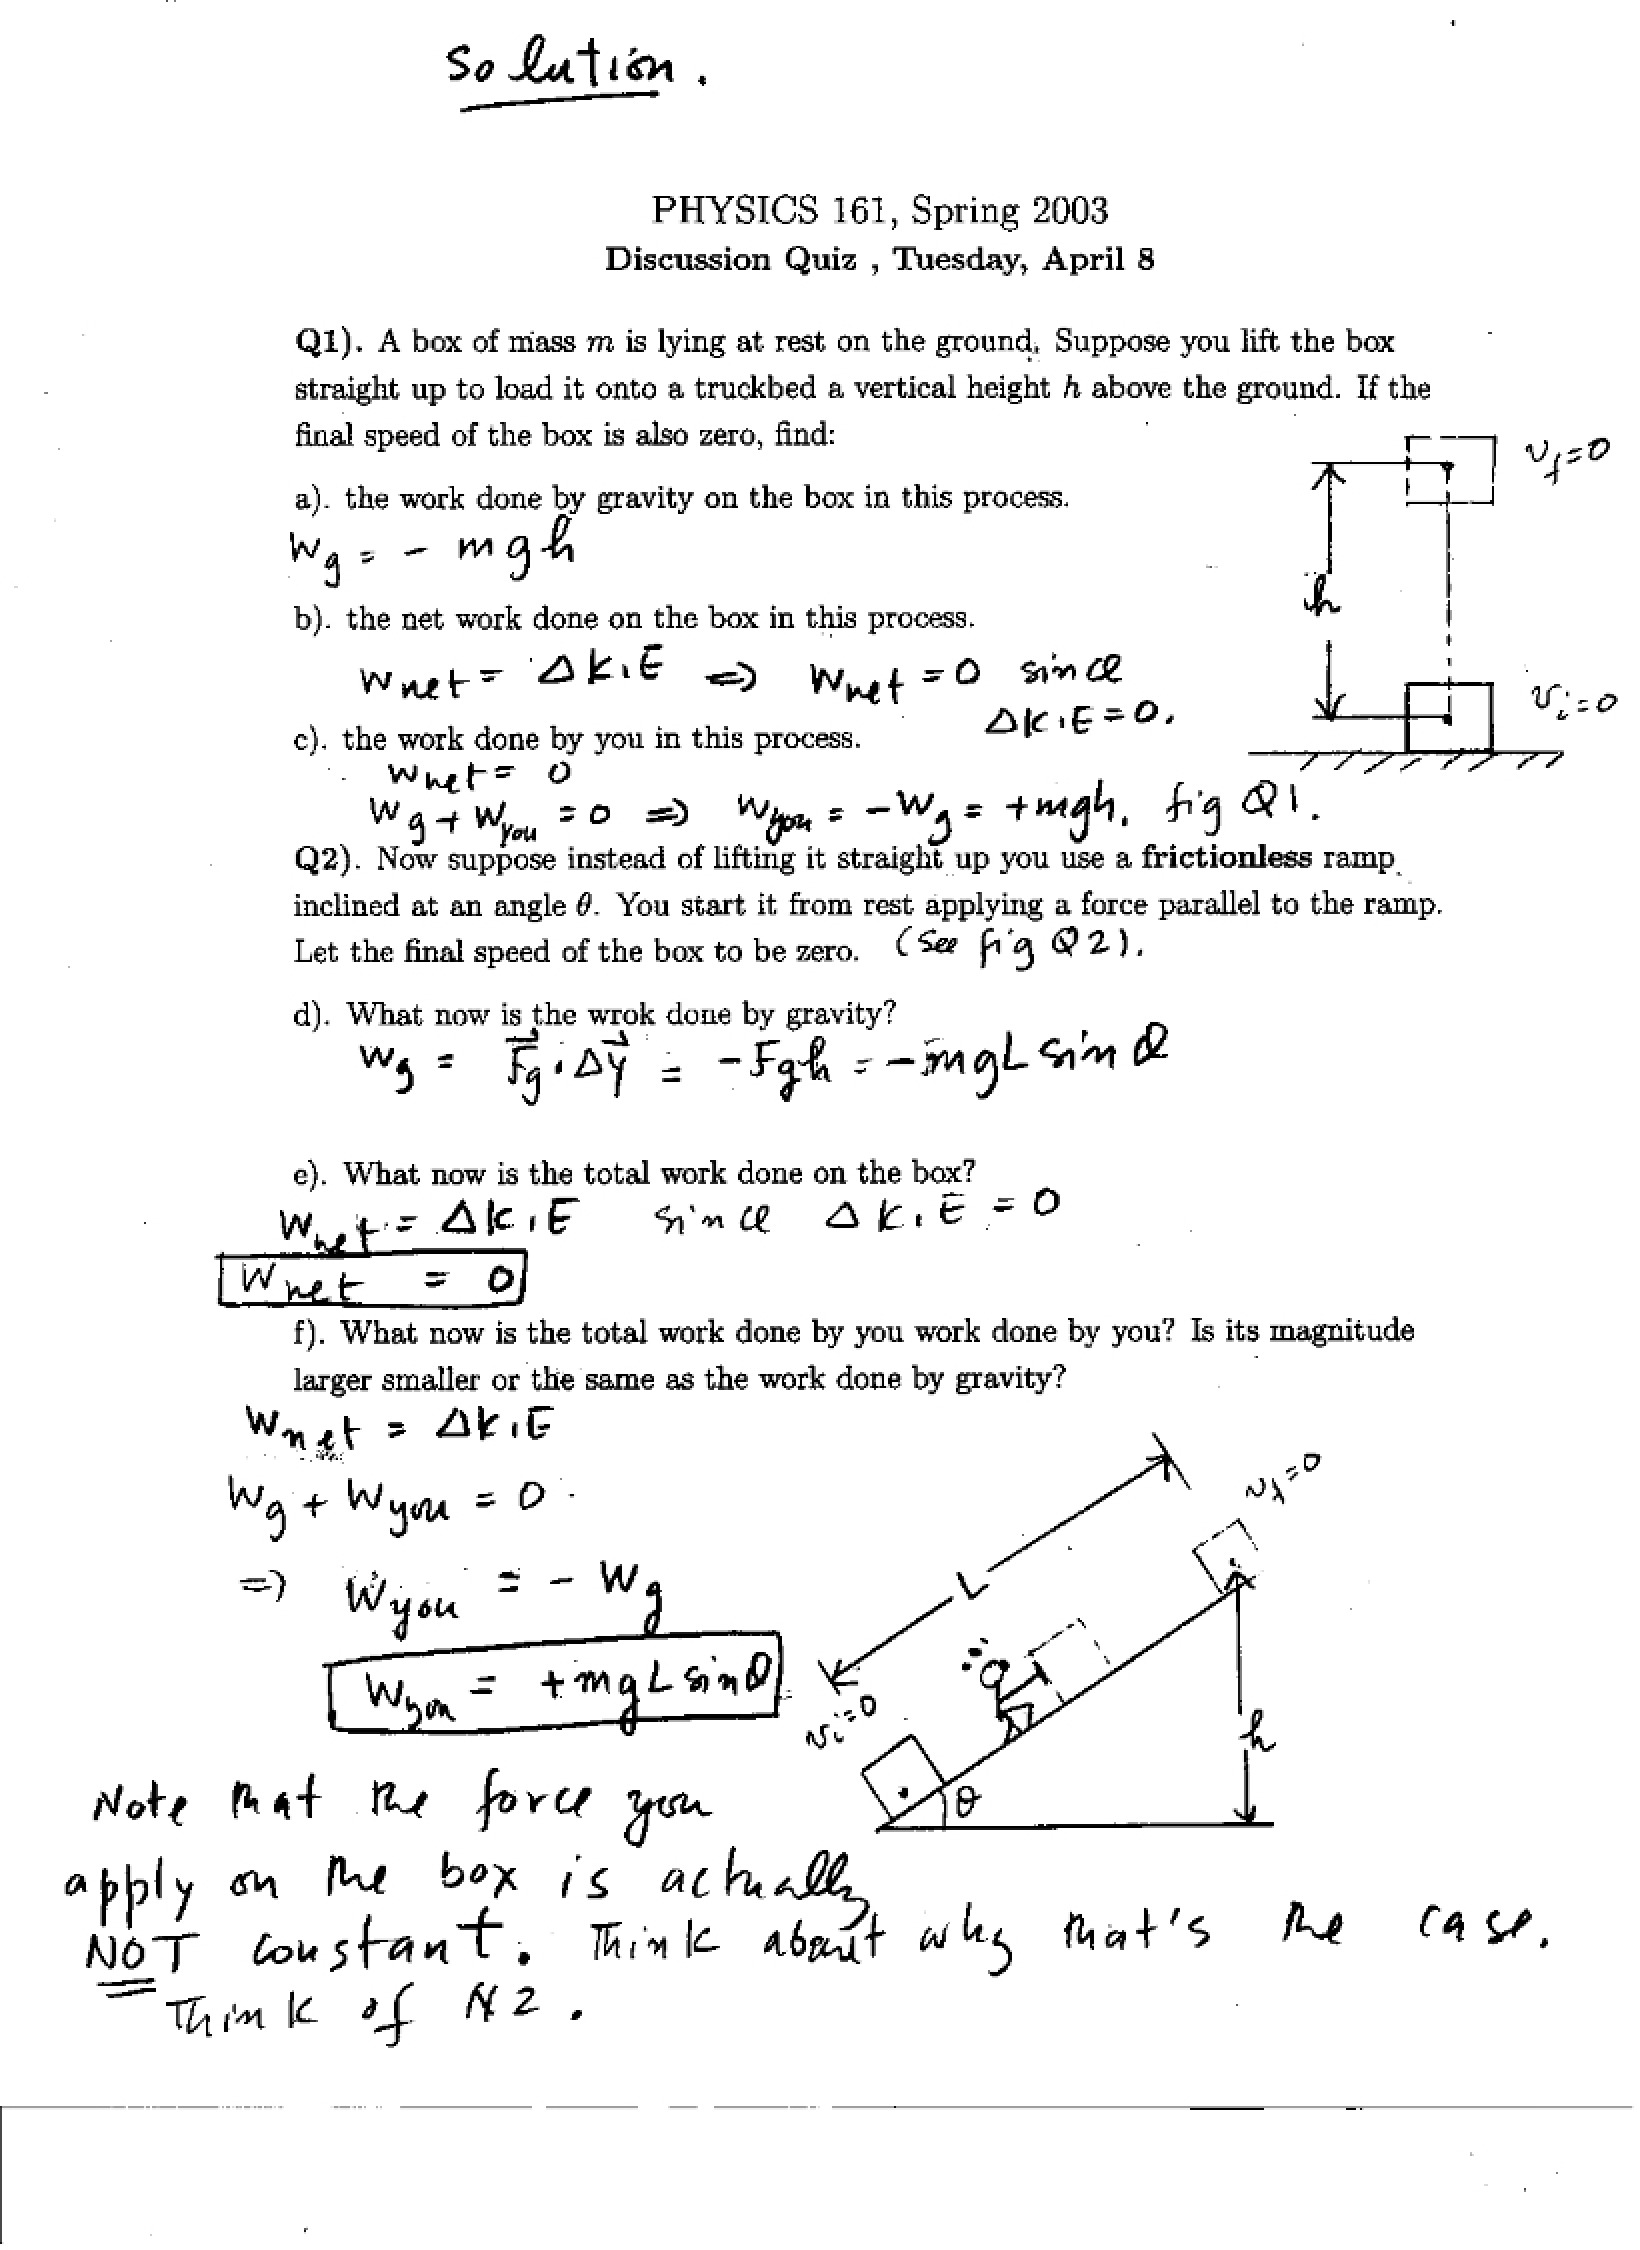 Solution.
PHYSICS 161, Spring 2003
Discussion Quiz , Tuesday, April 8
Q1). A box of mass m is lying at rest on the ground. Suppose you lift the box
straight up to load it onto a truckbed a vertical height h above the ground. If the
final speed of the box is also zero, find:
v_f=0
a). the work done by gravity on the box in this process.
W_g = - mgh
h
b). the net work done on the box in this process.
W_net = ΔK.E ⇒ W_net = 0 since
ΔK.E = 0.
v_i=0
c). the work done by you in this process.
W_net = 0
W_g + W_you = 0 ⇒ W_you = -W_g = +mgh. fig Q1.
Q2). Now suppose instead of lifting it straight up you use a frictionless ramp
inclined at an angle θ. You start it from rest applying a force parallel to the ramp.
Let the final speed of the box to be zero. (See fig Q2).
d). What now is the wrok done by gravity?
W_g = F⃗_g · ΔY⃗ = -F_g h = -mgL sin θ
e). What now is the total work done on the box?
W_net = ΔK.E since ΔK.E = 0
W_net = 0
f). What now is the total work done by you work done by you? Is its magnitude
larger smaller or the same as the work done by gravity?
W_net = ΔK.E
W_g + W_you = 0
⇒ W_you = - W_g
W_you = +mgL sin θ
v_f=0
L
v_i=0
h
θ
Note that the force you
apply on the box is actually
NOT constant. Think about why that's the case.
Think of N2.